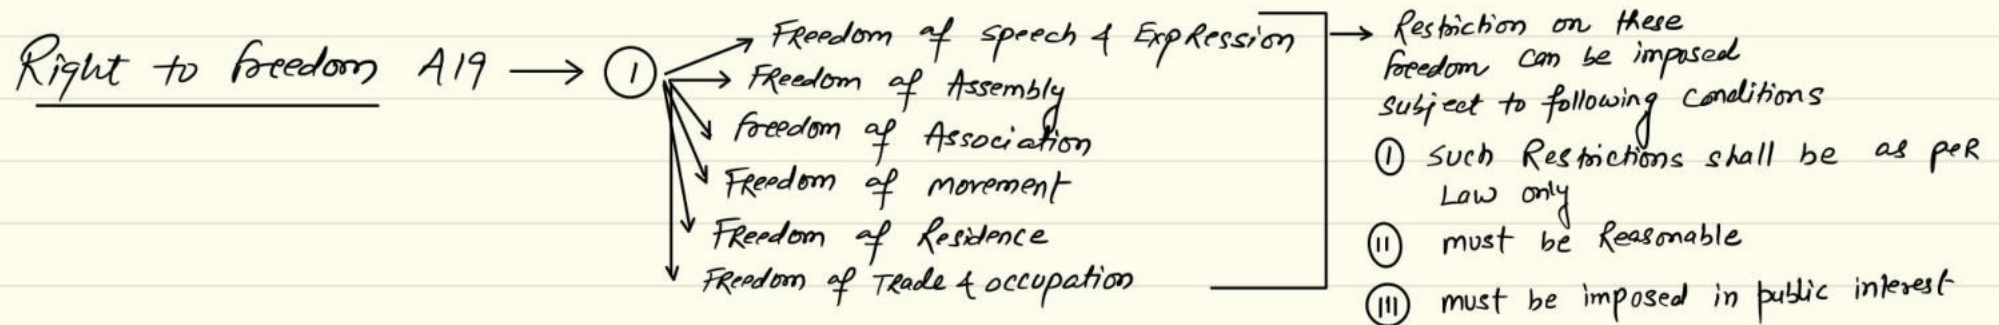 Right to freedom A19 → ①
Freedom of speech & Expression
Freedom of Assembly
freedom of Association
Freedom of movement
Freedom of Residence
Freedom of Trade & occupation
→ Restriction on these
freedom can be imposed
subject to following conditions
Ⓘ such Restrictions shall be as per
Law only
ⓘⓘ must be Reasonable
ⓘⓘⓘ must be imposed in public interest